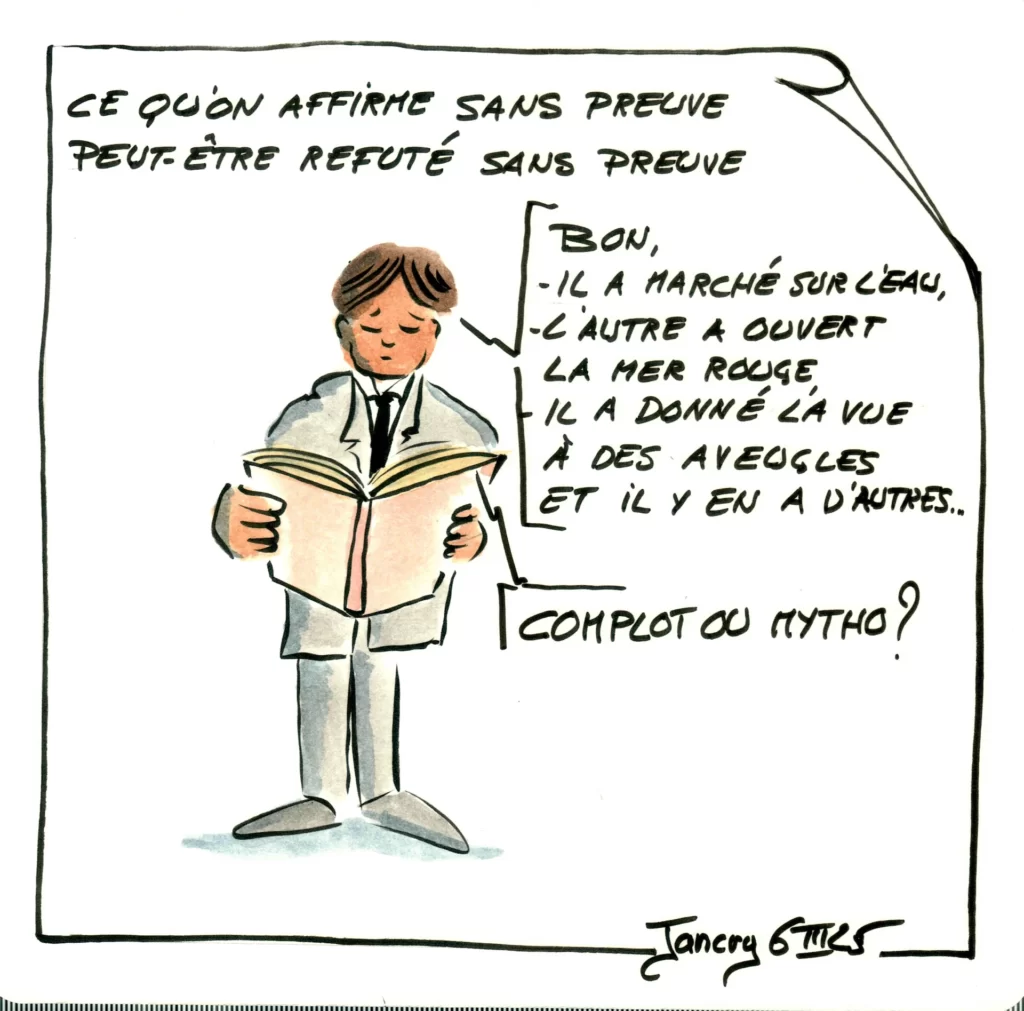 CE QU'ON AFFIRME SANS PREUVE
PEUT-ÊTRE REFUTÉ SANS PREUVE
BON,
-IL A MARCHÉ SUR L'EAU,
-L'AUTRE A OUVERT
LA MER ROUGE
-IL A DONNÉ LA VUE
À DES AVEUGLES
ET IL Y EN A D'AUTRES..
COMPLOT OU MYTHO?
Jancry 6 III 25